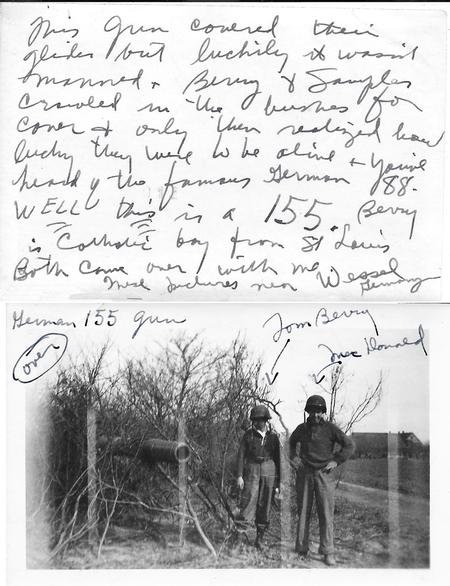 This Gun covered their
glider but luckily it wasn't
manned. Berry & Samples
Crawled in the bushes for
cover & only then realized how
lucky they were to be alive + You've
heard of the famous German 88.
WELL this is a 155 Berry
is Catholic boy from St Louis
Both Came over with me
These pictures near Wessel
Germany
German 155 Gun
Tom Berry
(over)
Mac Donald